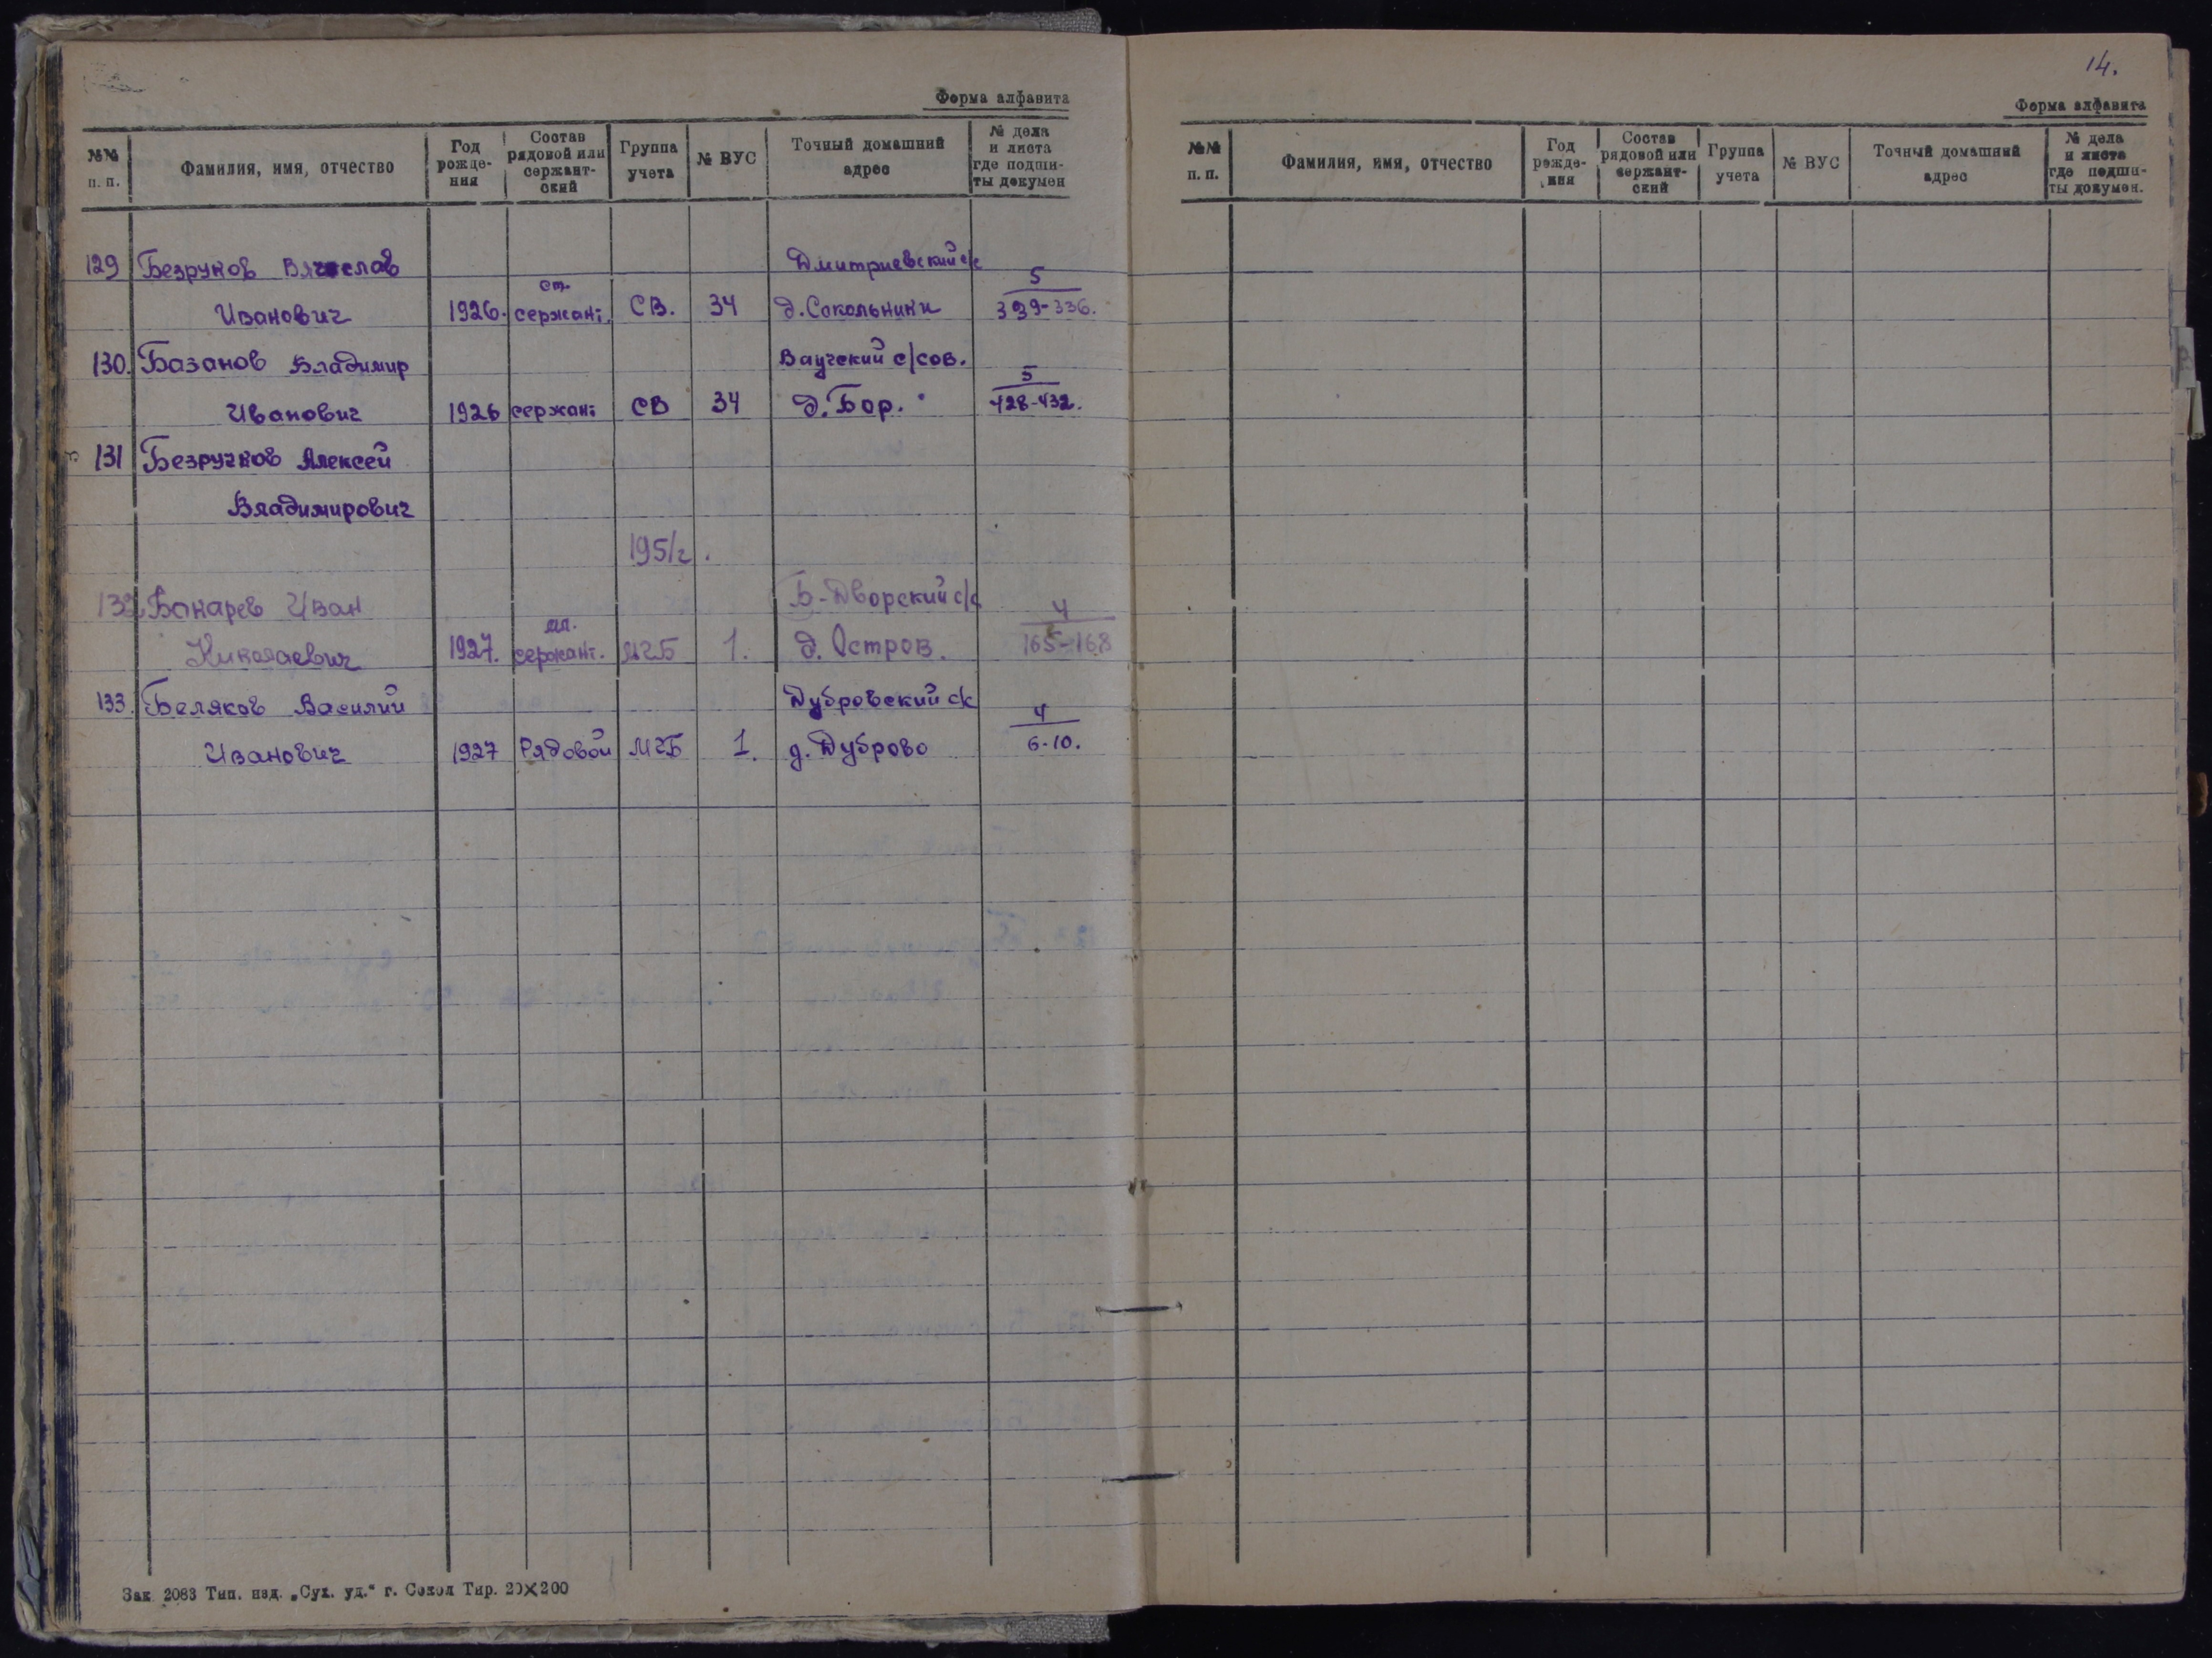 Форма алфавита
№№ п. п. Фамилия, имя, отчество Год рожде- ния Состав рядовой или сержант- ский Группа учета № ВУС Точный домашний адрес № дела и листа где подши- ты докумен
129 Безруков Вячеслав Дмитриевский с/с 5
Иванович 1926. ст. сержант. СВ. 34 д. Сокольники 339-336.
130. Базанов Владимир Ваучский с/сов. 5
Иванович 1926 сержант СВ 34 д. Бор. 428-432.
131 Безручков Алексей
Владимирович
1951г.
132 Бокарев Иван Б-Дворский с/с 4
Николаевич 1927. мл. сержант. МЧБ 1. д. Остров. 165-168
133. Беляков Василий Дубровский с/с 4
Иванович 1927 Рядовой МЧБ 1. д. Дуброво 6-10.
Зак 2083 Тип. изд. „Сух. уд.“ г. Сокол Тир. 20×200
14.
Форма алфавита
№№ п. п. Фамилия, имя, отчество Год рожде- ния Состав рядовой или сержант- ский Группа учета № ВУС Точный домашний адрес № дела и листа где подши- ты докумен.